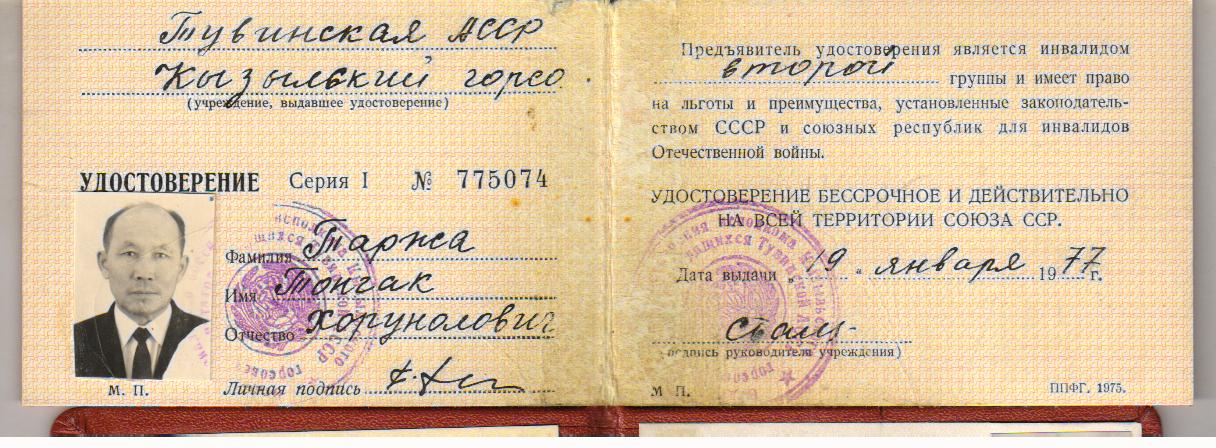 Тувинская АССР
Кызылский горсо
(учреждение, выдавшее удостоверение)
УДОСТОВЕРЕНИЕ Серия I № 775074
Фамилия Таржа
Имя Тонгак
Отчество Хорунолович
Личная подпись
М. П.
Предъявитель удостоверения является инвалидом
второй группы и имеет право
на льготы и преимущества, установленные законодатель-
ством СССР и союзных республик для инвалидов
Отечественной войны.
УДОСТОВЕРЕНИЕ БЕССРОЧНОЕ И ДЕЙСТВИТЕЛЬНО
НА ВСЕЙ ТЕРРИТОРИИ СОЮЗА ССР.
Дата выдачи „19 " января 1977 г.
(подпись руководителя учреждения)
М П.
ППФГ. 1975.